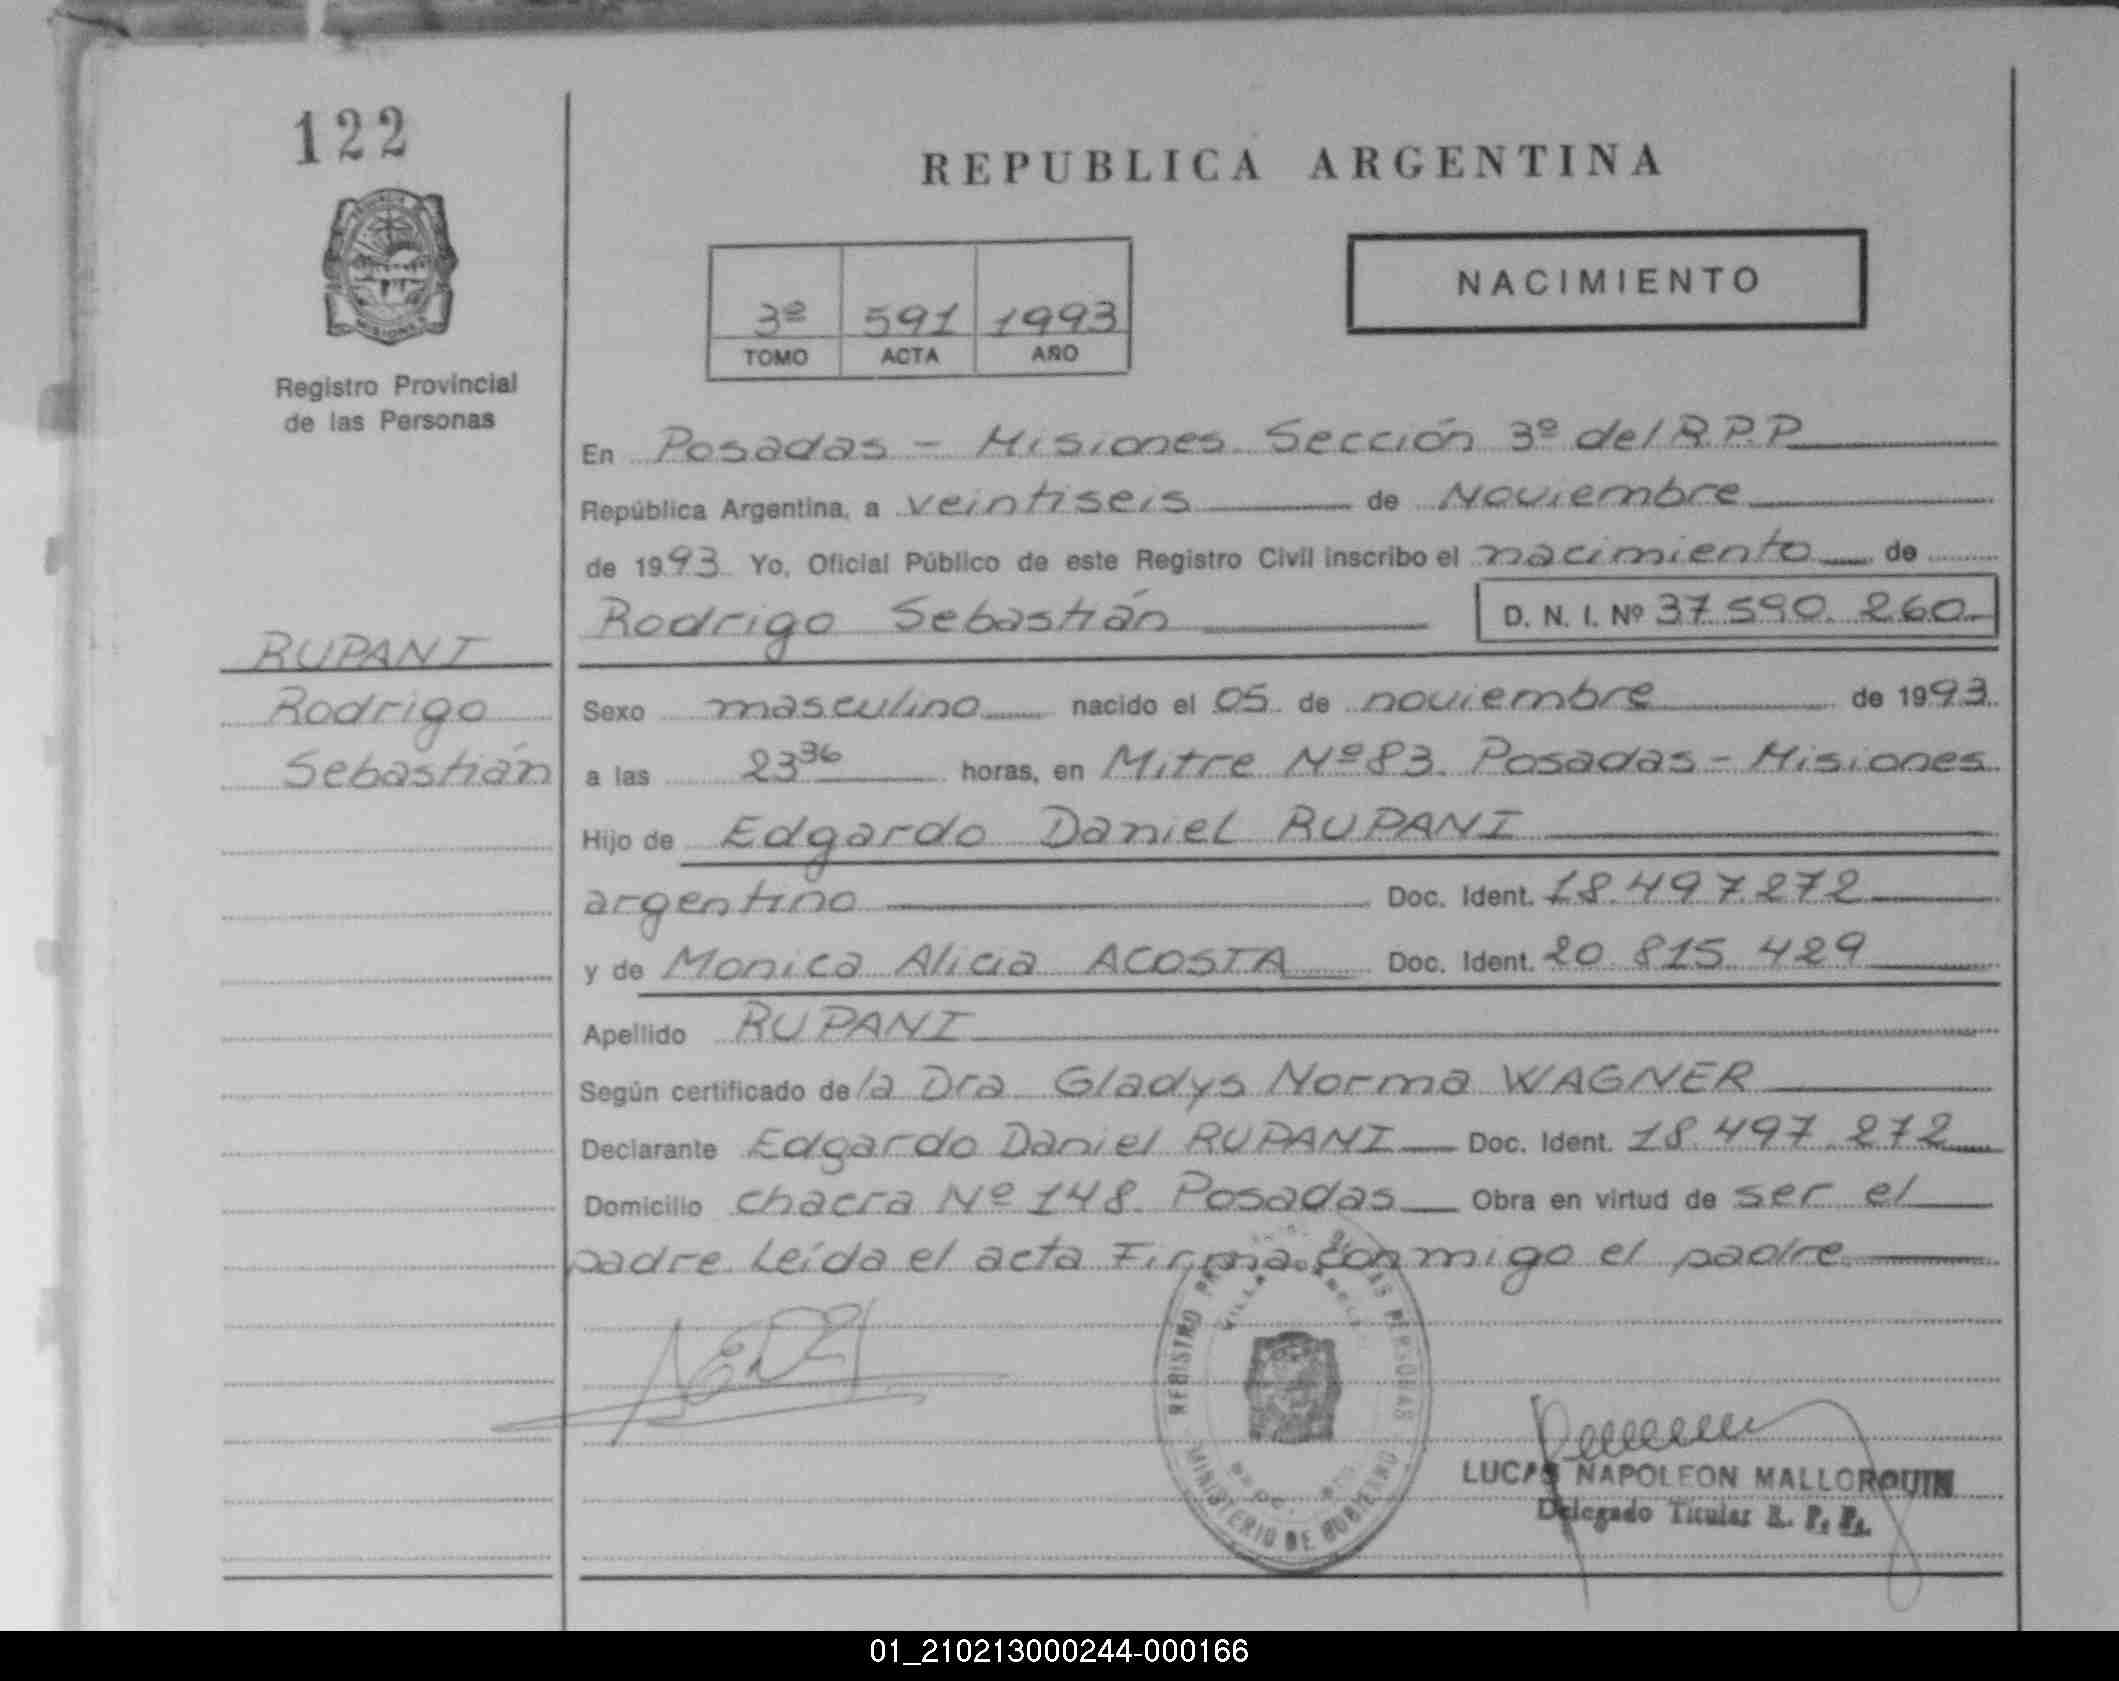 122
REPUBLICA ARGENTINA
NACIMIENTO
3º 591 1993
TOMO ACTA AÑO
MISIONES
Registro Provincial
de las Personas
En Posadas - Misiones Sección 3º del R.P.P.
República Argentina, a veintiseis de Noviembre
de 1993 Yo, Oficial Público de este Registro Civil inscribo el nacimiento de
Rodrigo Sebastián D. N. I. Nº 37.590.260
RUPANI
Rodrigo
Sebastián
Sexo masculino nacido el 05 de noviembre de 1993
a las 23 36 horas, en Mitre Nº 83 Posadas - Misiones
Hijo de Edgardo Daniel RUPANI
argentino Doc. Ident. 18.497.272
y de Monica Alicia ACOSTA Doc. Ident. 20.815.429
Apellido RUPANI
Según certificado de la Dra Gladys Norma WAGNER
Declarante Edgardo Daniel RUPANI Doc. Ident. 18.497.272
Domicilio chacra Nº 148 Posadas Obra en virtud de ser el
padre. Leída el acta Firma conmigo el padre
REGISTRO PROVINCIAL DE LAS PERSONAS
MINISTERIO DE GOBIERNO
LUCAS NAPOLEON MALLORQUIN
Delegado Titular R. P. P.
01_210213000244-000166